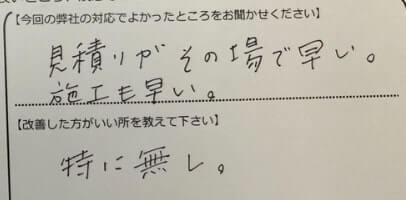 【今回の弊社の対応でよかったところをお聞かせください】
見積りがその場で早い。
施工も早い。
【改善した方がいい所を教えて下さい】
特に無し。